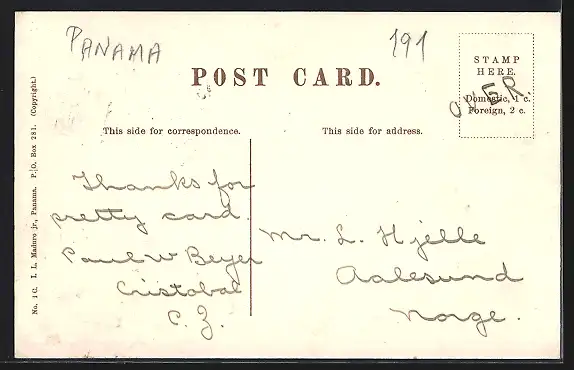 PANAMA
191
POST CARD.
STAMP
HERE.
Domestic, 1 c.
Foreign, 2 c.
OVER.
This side for correspondence.
This side for address.
No. 1 C. I. L. Maduro jr., Panama. P. O. Box 281. (Copyright.)
Thanks for
pretty card.
Paul W Beyer
Cristobal
C. Z.
Mr. L. Hjelle
Aalesund
Norge.